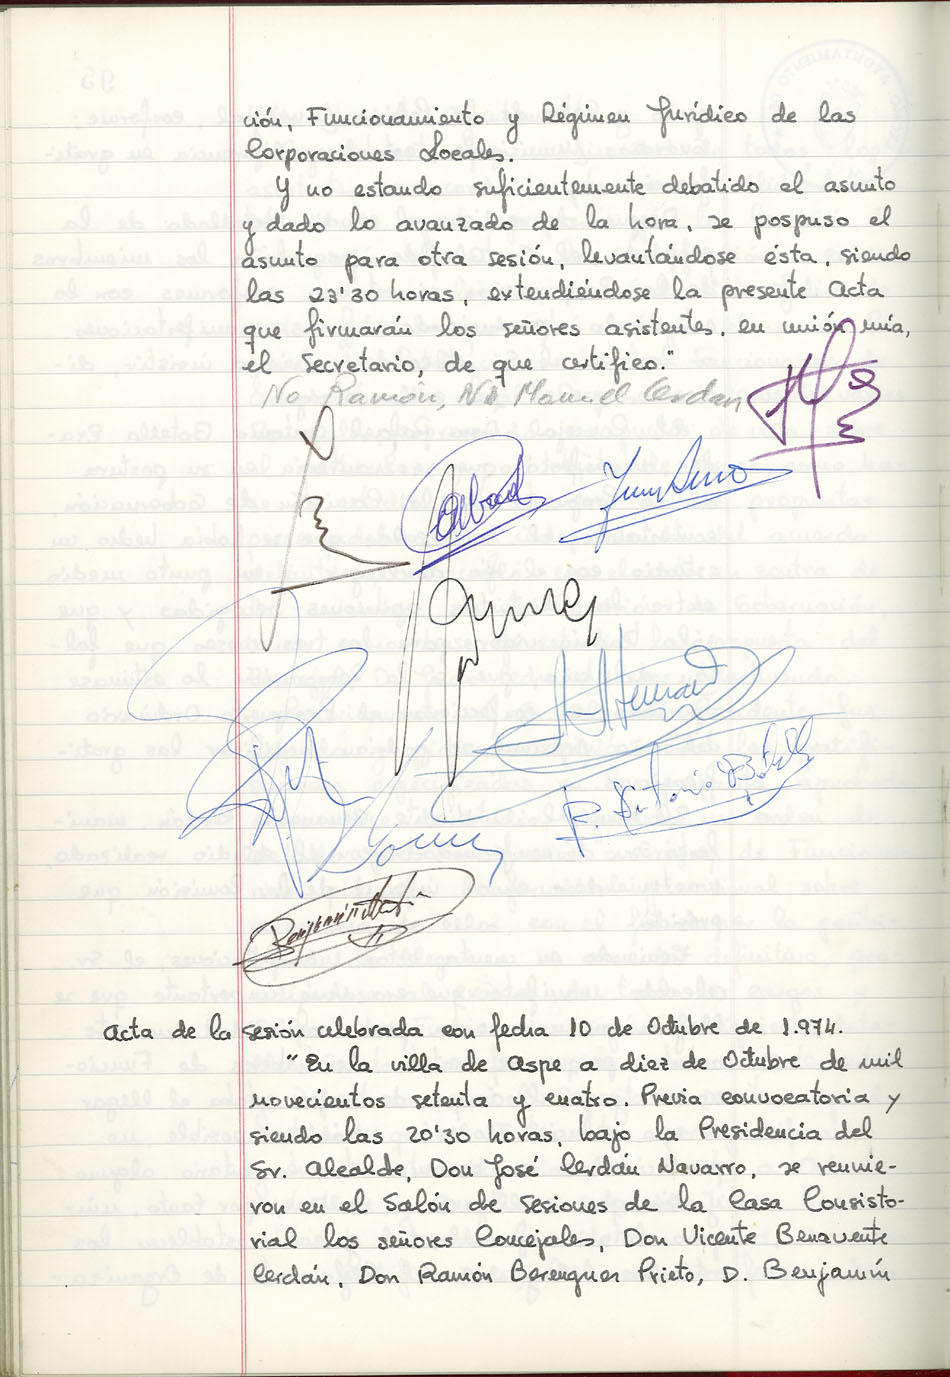 ción, Funcionamiento y Régimen Jurídico de las
Corporaciones Locales.
Y no estando suficientemente debatido el asunto
y dado lo avanzado de la hora, se pospuso el
asunto para otra sesión, levantándose ésta, siendo
las 23'30 horas, extendiéndose la presente Acta
que firmarán los señores asistentes, en unión mía,
el Secretario, de que certifico."
No Ramón, No Manuel Cerdan
R. Antonio Botella
Acta de la sesión celebrada con fecha 10 de Octubre de 1.974.
"En la villa de Aspe a diez de Octubre de mil
novecientos setenta y cuatro. Previa convocatoria y
siendo las 20'30 horas, bajo la Presidencia del
Sr. Alcalde, Don José Cerdán Navarro, se reunie-
ron en el Salón de Sesiones de la Casa Consisto-
rial los señores Concejales, Don Vicente Benavente
Cerdán, Don Ramón Berenguer Prieto, D. Benjamín